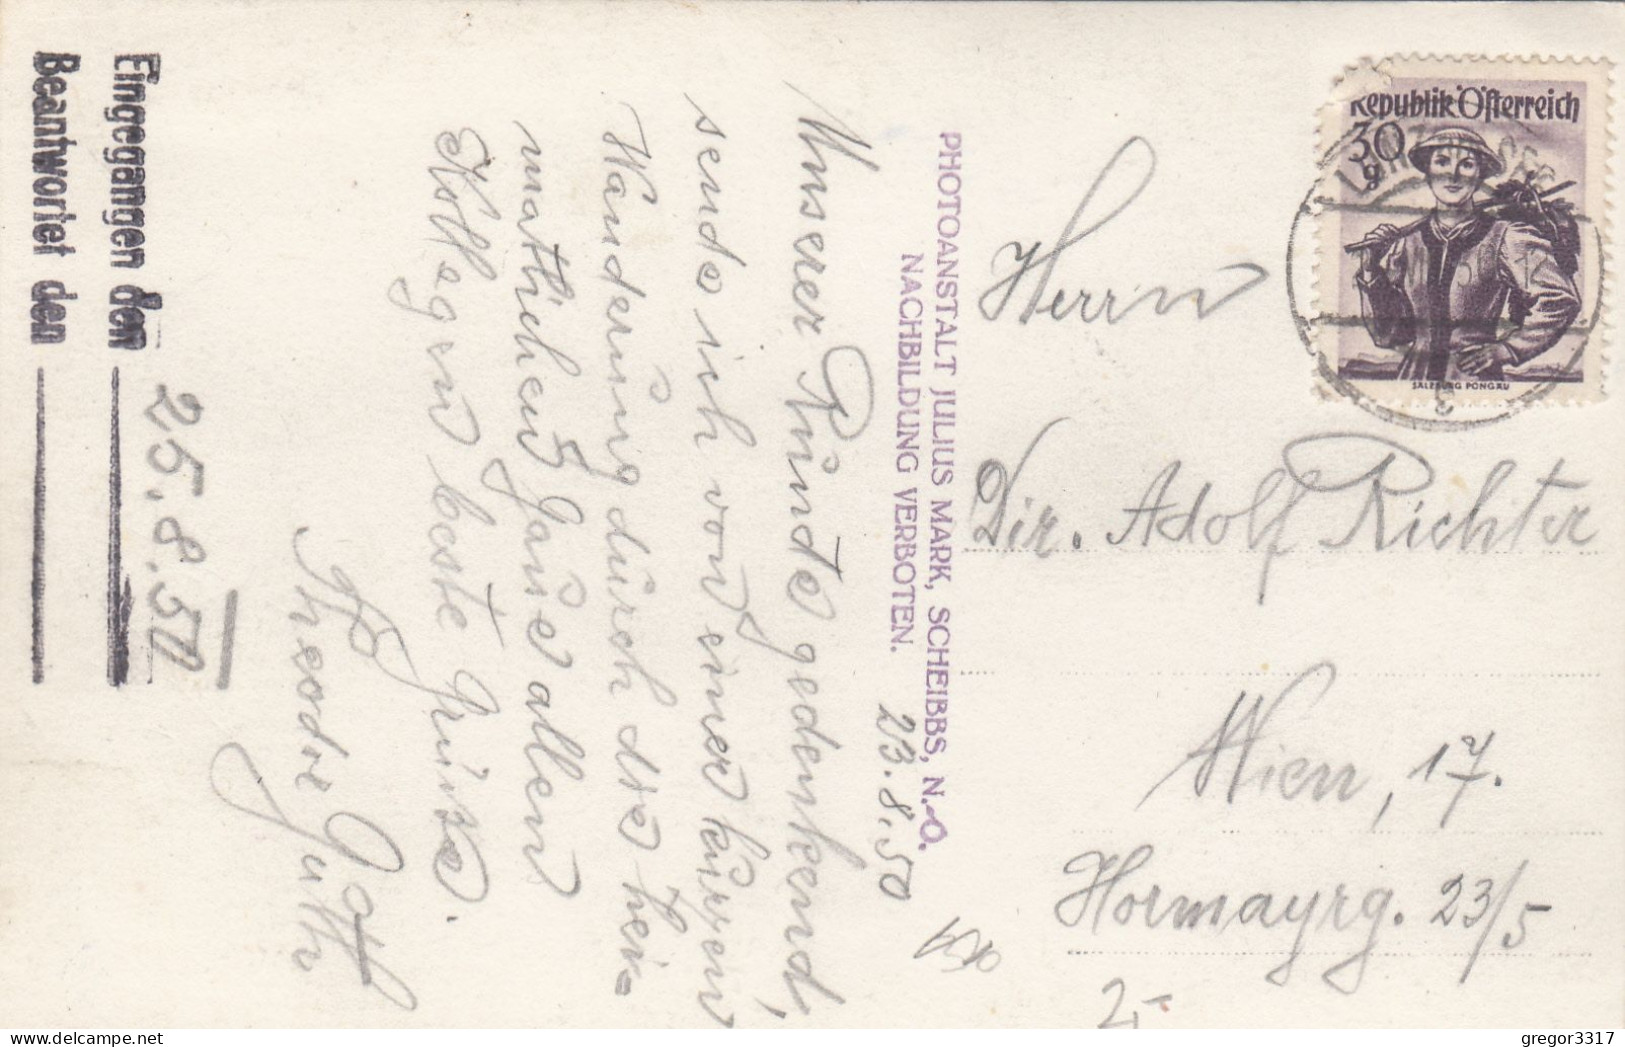 Eingegangen den
Beantwortet den
25.8.50
23.8.50
Unserer Runde gedenkend,
sende ich von einer kurzen
Wanderung durch die hei=
matlichen Gaue allen
Kollegen beste Grüsse.
Theodor Guth
PHOTOANSTALT JULIUS MARK, SCHEIBBS, N.-Ö.
NACHBILDUNG VERBOTEN.
Republik Österreich
30
g
SALZBURG PONGAU
Herrn
Dir. Adolf Richter
Wien, 17.
Hormayrg. 23/5
2,-
gregor3317